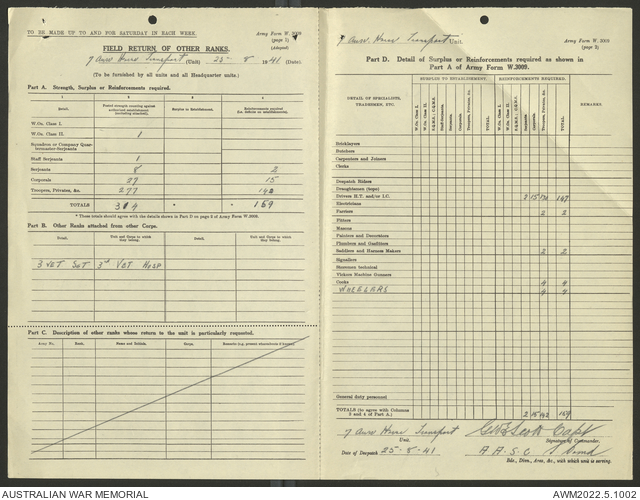 TO BE MADE UP TO AND FOR SATURDAY IN EACH WEEK.
Army Form W. 3009
(page 1)
(Adapted)
FIELD RETURN OF OTHER RANKS.
7 Aust Horse Transport (Unit) 25-8 1941 (Date)
(To be furnished by all units and all Headquarter units.)
Part A. Strength, Surplus or Reinforcements required.
1 2 3 4
Detail.
Surplus to Establishment.
Reinforcements required
W.Os. Class I.
W.Os. Class II. 1
Squadron or Company Quartermaster-Serjeants
Staff Serjeants 1
Serjeants 8 2
Corporals 27 15
Troopers, Privates, &c. 277 142
TOTALS 314 * * 159
* These totals should agree with the details shown in Part D on page 2 of Army Form W.3009.
Part B. Other Ranks attached from other Corps.
Detail. Unit and Corps to which they belong. Detail. Unit and Corps to which they belong.
3 VET SGT 3rd VET HOSP
Part C. Description of other ranks whose return to the unit is particularly requested.
Army No. Rank. Name and Initials. Corps. Remarks
7 Aust Horse Transport Unit.
Army Form W. 3009
(page 2)
Part D. Detail of Surplus or Reinforcements required as shown in
Part A of Army Form W.3009.
SURPLUS TO ESTABLISHMENT. REINFORCEMENTS REQUIRED.
DETAIL OF SPECIALISTS, TRADESMEN, ETC.
W.Os. Class I. W.Os. Class II. Staff-Serjeants. Serjeants. Corporals. Troopers, Privates, &c. TOTAL
W.Os. Class I. W.Os. Class II. Serjeants. Corporals. Troopers, Privates, &c. TOTAL
REMARKS
Bricklayers
Butchers
Carpenters and Joiners
Clerks
Despatch Riders
Draughtsmen (topo)
Drivers H.T. and/or I.C. 2 15 130 147
Electricians
Farriers 2 2
Fitters
Masons
Painters and Decorators
Plumbers and Gasfitters
Saddlers and Harness Makers 2 2
Signallers
Storemen technical
Vickers Machine Gunners
Cooks 4 4
WHEELERS 4 4
General duty personnel
TOTALS (to agree with Columns 3 and 4 of Part A.) 2 15 142 159
7 Aust Horse Transport
Unit.
Scott Capt
Signature of Commander.
Date of Despatch 25-8-41
A A S C
Bde., Divn., Area, &c., with which unit is serving.
AUSTRALIAN WAR MEMORIAL
AWM2022.5.1002